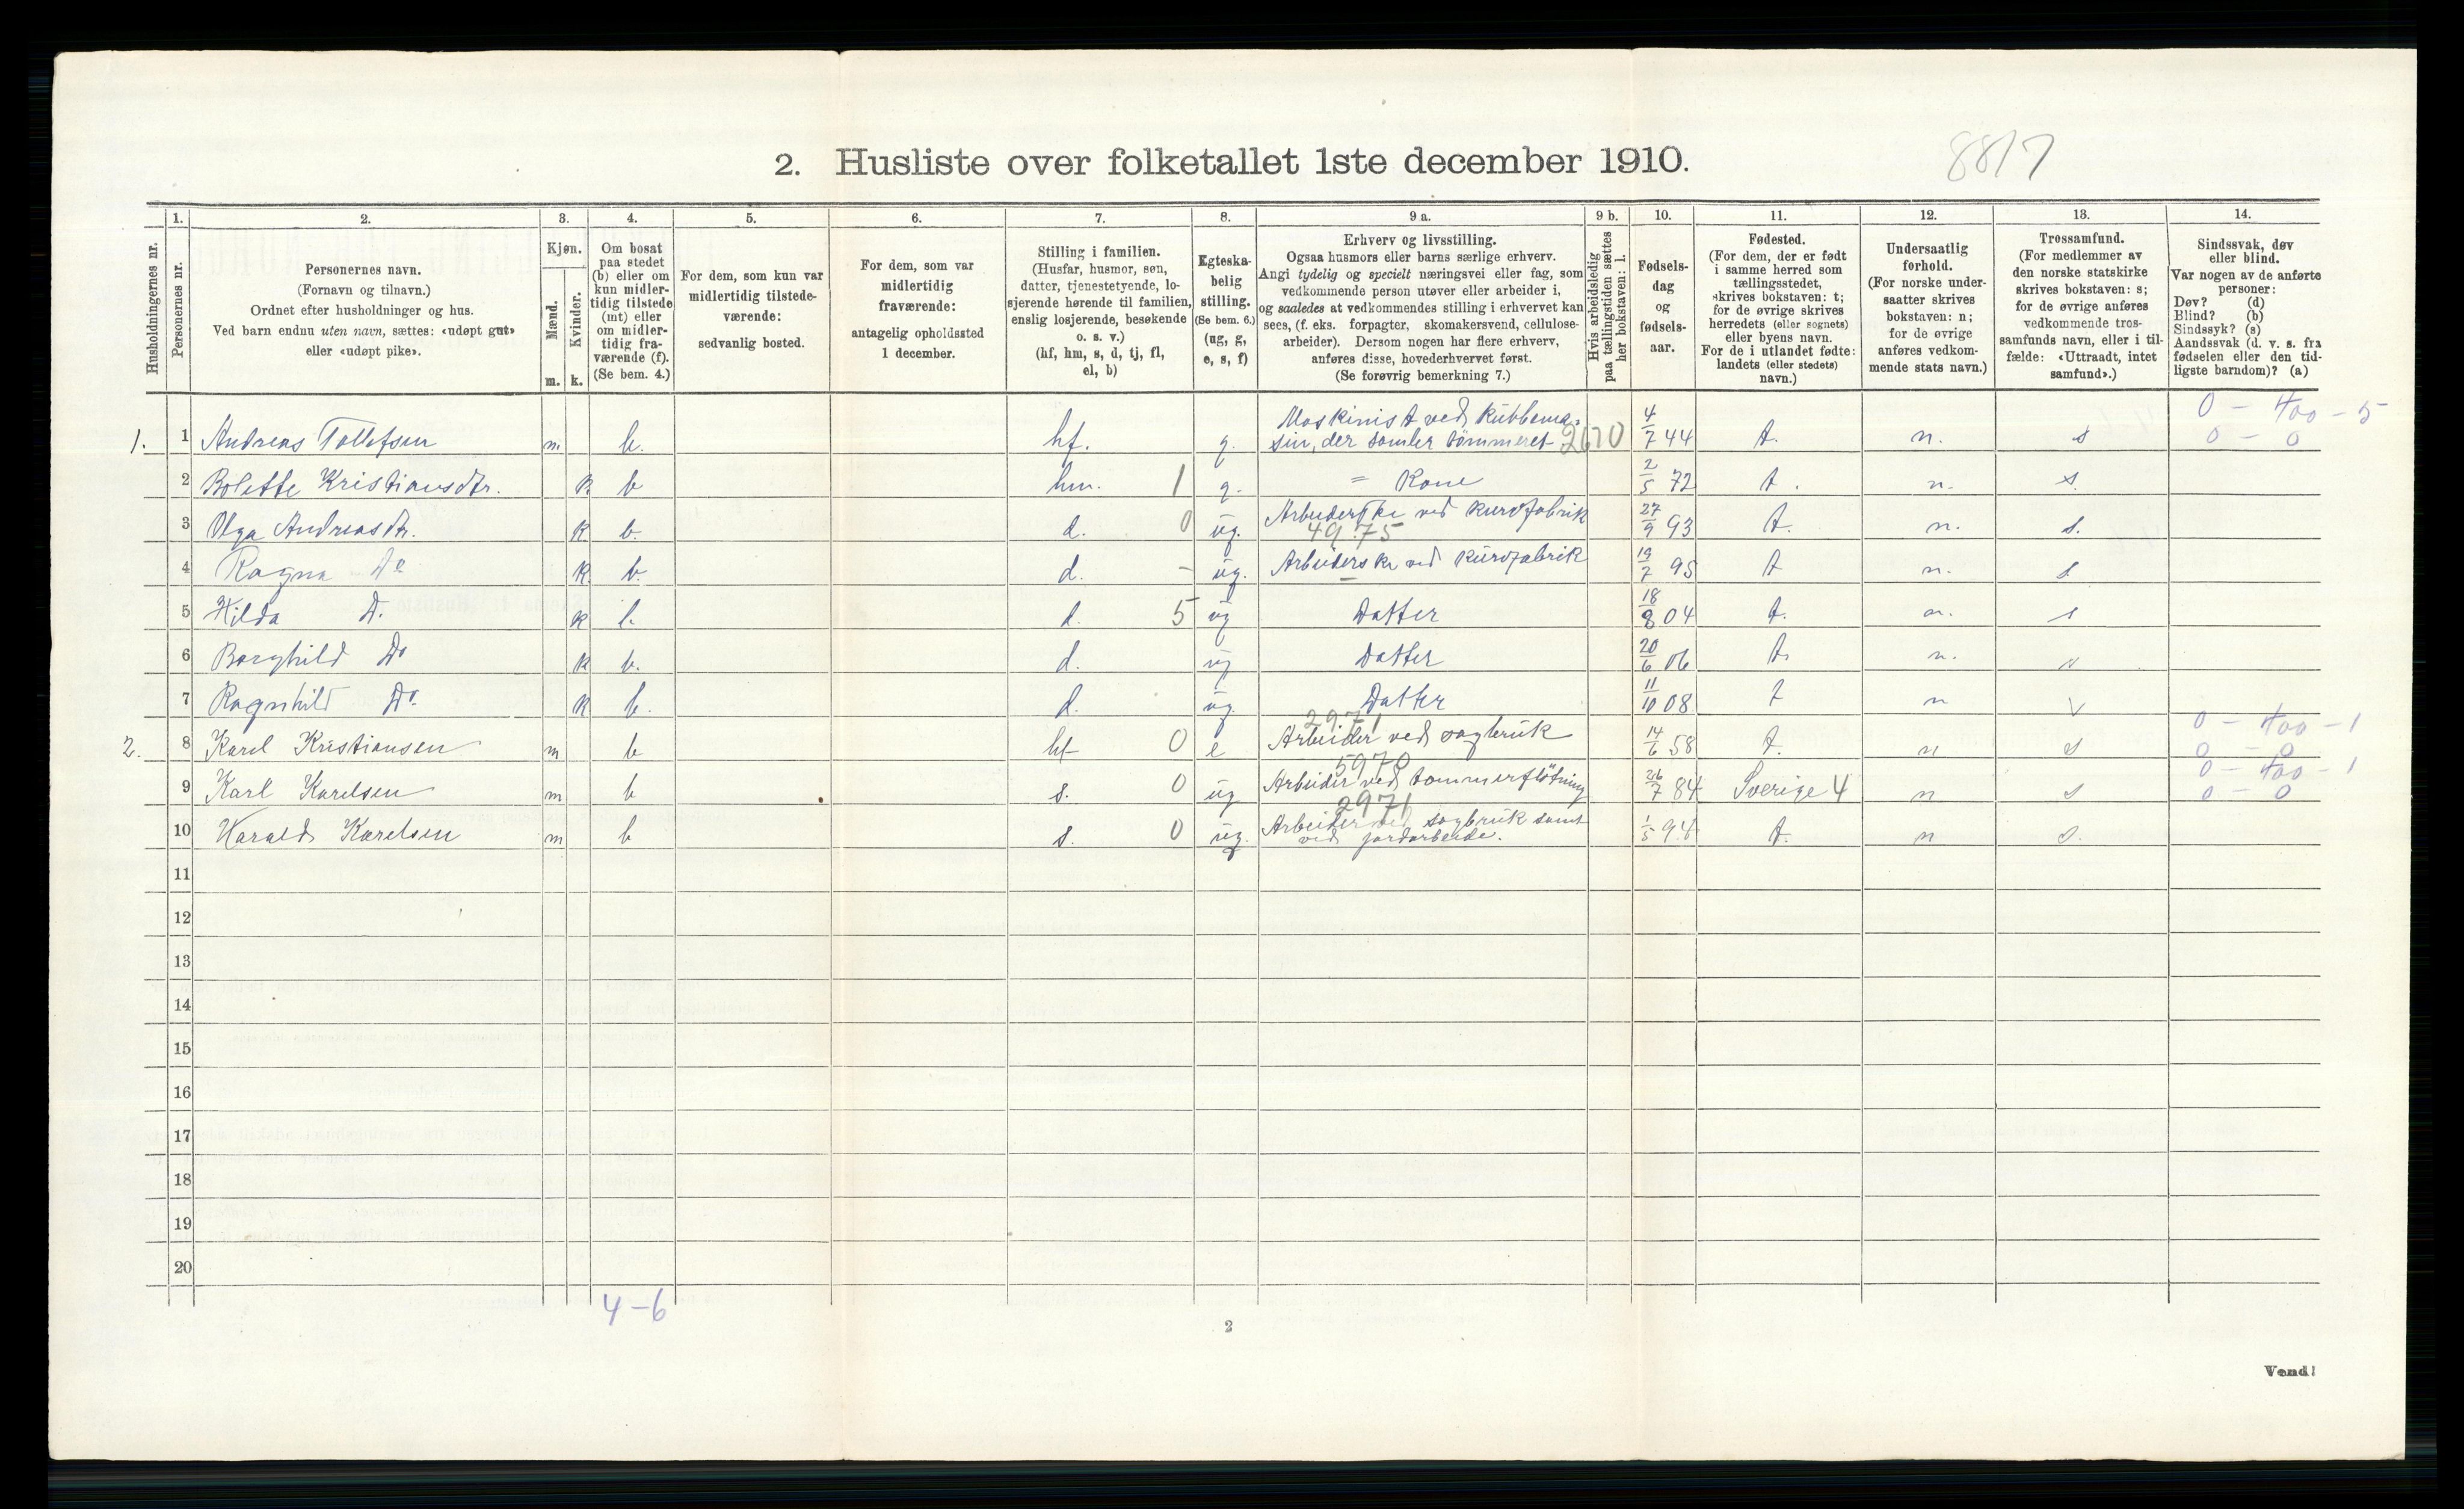 8817
2. Husliste over folketallet 1ste december 1910.
Husholdningernes nr.
1.
Personernes nr.
2.
Personernes navn.
(Fornavn og tilnavn.)
Ordnet efter husholdninger og hus.
Ved barn endnu uten navn, sættes: «udøpt gut»
eller «udøpt pike».
3.
Kjøn.
Mænd.
m.
Kvinder.
k.
4.
Om bosat
paa stedet
(b) eller om
kun midler-
tidig tilstede
(mt) eller
om midler-
tidig fra-
værende (f).
(Se bem. 4.)
5.
For dem, som kun var
midlertidig tilstede-
værende:
sedvanlig bosted.
6.
For dem, som var
midlertidig
fraværende:
antagelig opholdssted
1 december.
7.
Stilling i familien.
(Husfar, husmor, søn,
datter, tjenestetyende, lo-
sjerende hørende til familien,
enslig losjerende, besøkende
o. s. v.)
(hf, hm, s, d, tj, fl,
el, b)
8.
Egteska-
belig
stilling.
(Se bem. 6.)
(ug, g,
e, s, f)
9 a.
Erhverv og livsstilling.
Ogsaa husmors eller barns særlige erhverv.
Angi tydelig og specielt næringsvei eller fag, som
vedkommende person utøver eller arbeider i,
og saaledes at vedkommendes stilling i erhvervet kan
sees, (f. eks. forpagter, skomakersvend, cellulose-
arbeider). Dersom nogen har flere erhverv,
anføres disse, hovederhvervet først.
(Se forøvrig bemerkning 7.)
9 b.
Hvis arbeidsledig
paa tællingstiden sættes
her bokstaven: l.
10.
Fødsels-
dag
og
fødsels-
aar.
11.
Fødested.
(For dem, der er født
i samme herred som
tællingsstedet,
skrives bokstaven: t;
for de øvrige skrives
herredets (eller sognets)
eller byens navn.
For de i utlandet fødte:
landets (eller stedets)
navn.)
12.
Undersaatlig
forhold.
(For norske under-
saatter skrives
bokstaven: n;
for de øvrige
anføres vedkom-
mende stats navn.)
13.
Trossamfund.
(For medlemmer av
den norske statskirke
skrives bokstaven: s;
for de øvrige anføres
vedkommende tros-
samfunds navn, eller i til-
fælde: «Uttraadt, intet
samfund».)
14.
Sindssvak, døv
eller blind.
Var nogen av de anførte
personer:
Døv? (d)
Blind? (b)
Sindssyk? (s)
Aandssvak (d. v. s. fra
fødselen eller den tid-
ligste barndom)? (a)
1. 1 Andreas Tollefsen m. b. hf. g. Maskinist ved Kubbema-
sin, der samler tømmeret 2610 4/7 44 t. n. s 0 - 400 - 5
0 - 0
2 Bolette Kristiansdtr. k b hm. 1 g. = Kone 2/5 72 t. n. s.
3 Olga Andreasdtr. k b. d. 0 ug. Arbeiderske ved kurvfabrik 27/9 93 t. n. s.
49.75
4 Ragna Do k. b. d. - ug. Arbeiderske ved kurvfabrik 19/7 95 t n. s
5 Hilda D. k b. d. 5 ug Datter 18/8 04 t. n. s
6 Borghild Do k b. d. ug Datter 20/6 06 t. n. s
7 Ragnhild Do. k b. d. ug. Datter 11/10 08 t n
2971
2. 8 Karel Kristiansen m b hf 0 e Arbeider ved sagbruk 14/6 58 t. n s 0 - 400 - 1
0 - 0
5970
9 Karl Karelsen m b s. 0 ug Arbeider ved tømmerfløtning 26/7 84 Sverige 4 n s 0 - 400 - 1
0 - 0
2971
10 Harald Karelsen m b s. 0 ug. Arbeider ved sagbruk samt
ved jordarbeide. 1/5 94 t. n s.
11
12
13
14
15
16
17
18
19
20
4-6
2
Vend!